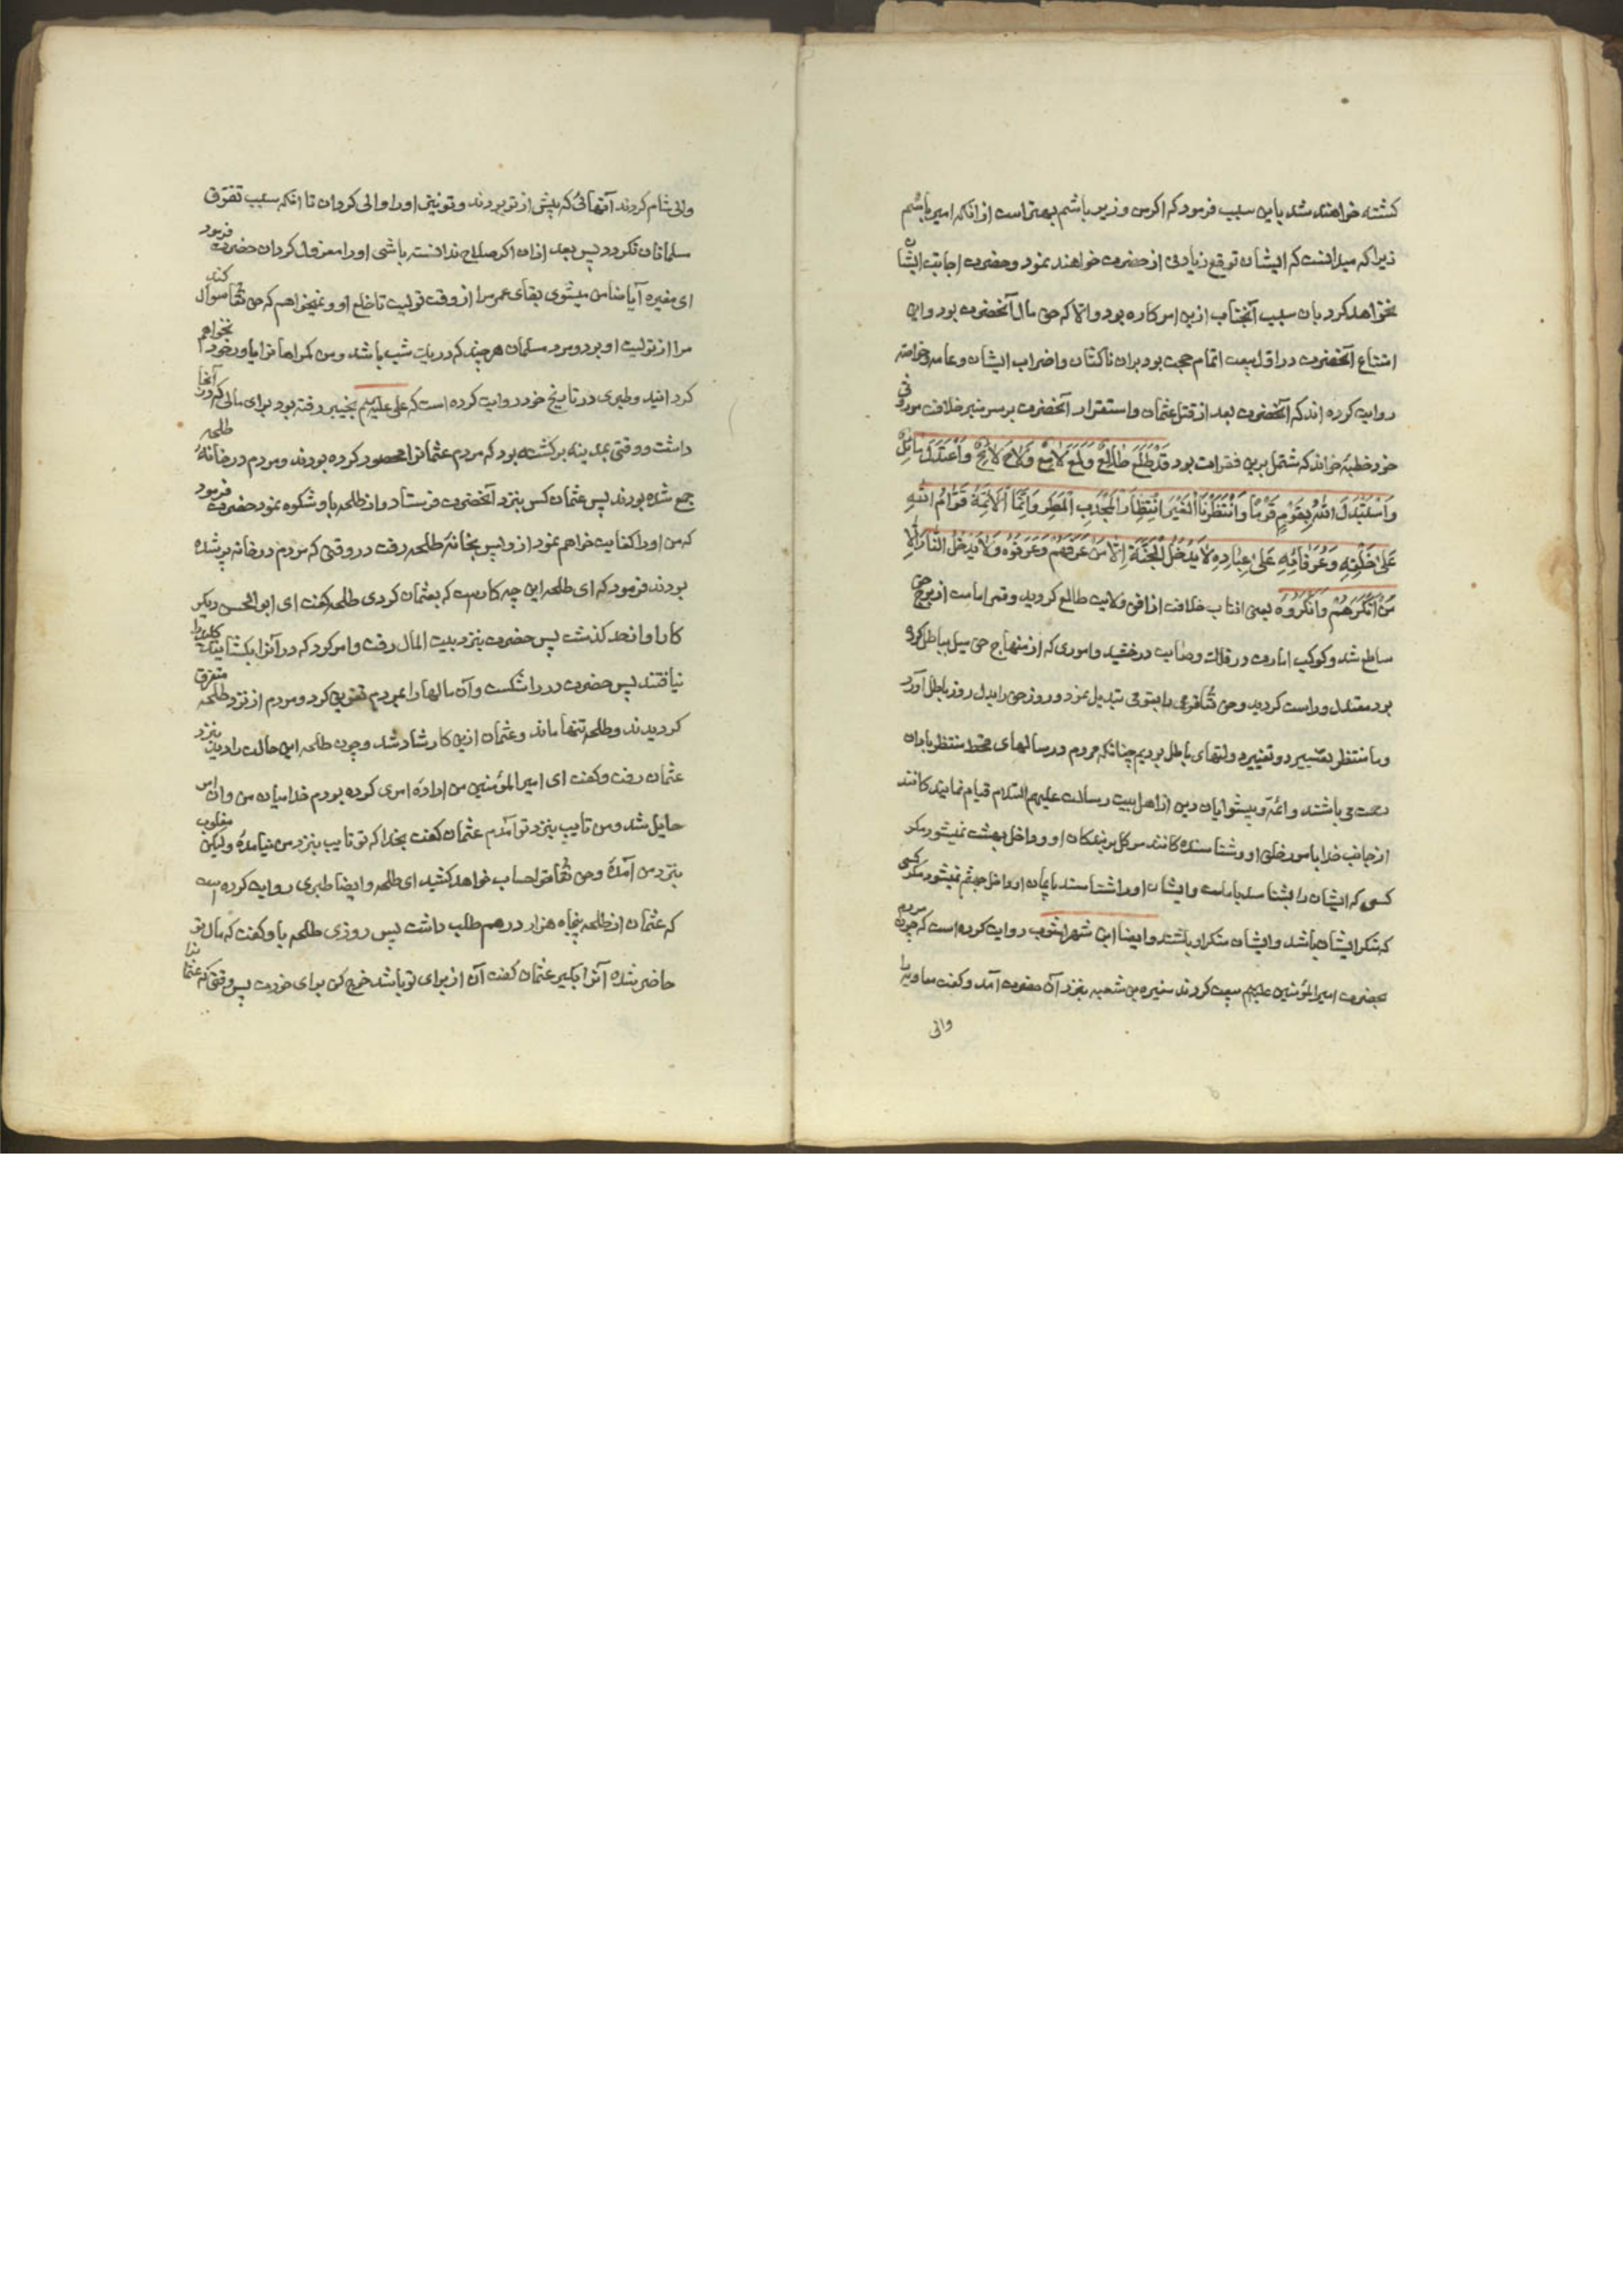 کشته خواهند شد باین سبب فرمود که اگر من وزیر باشم بهتر است از انکه امیر باشم
زیرا که میدانست که ایشان توقع زیادتی از حضرت خواهند نمود و حضرت اجابت ایشان
نخواهد کرد بان سبب آنجناب ازین امر کاره بود والا که حق مال آنحضرت بود و این
امتناع آنحضرت در اول بیعت اتمام حجت بود بران ناکثان و اضراب ایشان و عامه و خاصه
روایت کرده اند که آنحضرت بعد از قتل عثمان و استقرار آنحضرت بر سریر خلافت موروثی
خود خطبهٔ خواند که مشتمل برین فقرات بود قَدْ طَلَعَ طَالِعٌ وَلَمَعَ لَامِعٌ وَلَاحَ لَائِحٌ وَاعْتَدَلَ مَائِلٌ
وَاسْتَبْدَلَ اللّٰهُ بِقَوْمٍ قَوْمًا وَانْتَظَرْنَا الْغِيَرَ انْتِظَارَ الْمُجْدِبِ الْمَطَرَ وَاِنَّمَا الْاَئِمَّةُ قُوَّامُ اللّٰهِ
عَلٰى خَلْقِهِ وَعُرَفَاؤُهُ عَلٰى عِبَادِهِ لَا يَدْخُلُ الْجَنَّةَ اِلَّا مَنْ عَرَفَهُمْ وَعَرَفُوهُ وَلَا يَدْخُلُ النَّارَ اِلَّا
مَنْ اَنْكَرَهُمْ وَاَنْكَرُوهُ یعنی افتاب خلافت از افق ولایت طالع کردید و قمر امامت از برج حق
ساطع شد و کوکب امارت در فلک وصایت درخشید و اموری که از منهاج حق میل بباطل کرده
بود معتدل و راست کردید و حق تعالی قومی را بقومی تبدیل نمود و روز حق را بدل روز باطل آورد
و ما منتظر تغییر دولتهای باطل بودیم چنانکه مردم در سالهای قحط منتظر باران
رحمت می باشند و ائمه و پیشوایان دین از اهل بیت رسالت علیهم السلام قیام نمایندکانند
از جانب خدا بامور خلق او و شناسنده کانند موکل بر بندکان او و داخل بهشت نمیشود مکر
کسی که ایشان را بشناسد بامامت و ایشان او را شناسند بایمان و داخل جهنم نمیشود مکر کسی
که منکر ایشان باشد و ایشان منکر او باشند و ایضا ابن شهراشوب روایت کرده است که چون مردم
بحضرت امیرالمؤمنین علیه السلم بیعت کردند مغیره بن شعبه بنزد آن حضرت آمد و کفت معاویه را
والی
والی شام کردند آنهائی که پیش از تو بودند و تو نیز او را والی کردان تا انکه سبب تفرق
مسلمانان نکردد پس بعد ازان اکر صلاح ندانسته باشی او را معزول کردان حضرت فرمود
ای مغیره آیا ضامن میشوی بقای عمر مرا از وقت تولیت تا خلع او و نمیخواهم که حق تعالی سوال کند
مرا از تولیت او بر دو مرد مسلمان هر چند که در یک شب باشد و من کمراهانرا یاور خود نخواهم
کردانید و طبری در تاریخ خود روایت کرده است که علی علیه السلم بخیبر رفته بود برای مالی که در آنجا
داشت و وقتی بمدینه برکشته بود که مردم عثمانرا محصور کرده بودند و مردم در خانهٔ طلحه
جمع شده بودند پس عثمان کس بنزد آنحضرت فرستاد و از طلحه باو شکوه نمود حضرت فرمود
که من او را کفایت خواهم نمود از و پس بخانهٔ طلحه رفت در وقتی که مردم در خانه پر شده
بودند فرمود که ای طلحه این چه کاریست که بعثمان کردی طلحه کفت ای ابوالحسن دیکر
کار از حد کذشت پس حضرت بنزد بیت المال رفت و امر کرد که در آنرا بکشایند کلید را
نیافتند پس حضرت در را شکست و آن مالها را بمردم تفریق کرد و مردم از نزد طلحه متفرق
کردیدند و طلحه تنها ماند و عثمان ازین کار شاد شد و چون طلحه این حالت را دید بنزد
عثمان رفت و کفت ای امیر المؤمنین من ارادهٔ امری کرده بودم خدا میان من و ان امر
حایل شد و من تایب بنزد تو آمدم عثمان کفت بخدا که تو تایب بنزد من نیامدهٔ ولیکن مغلوب
بنزد من آمدهٔ و حق تعالی از تو حساب خواهد کشید ای طلحه و ایضا طبری روایت کرده است
که عثمان از طلحه پنجاه هزار درهم طلب داشت پس روزی طلحه باو کفت که مال تو
حاضر شده آنرا بکیر عثمان کفت آن از برای تو باشد خرج کن برای خودت پس وقتی که عثمان را